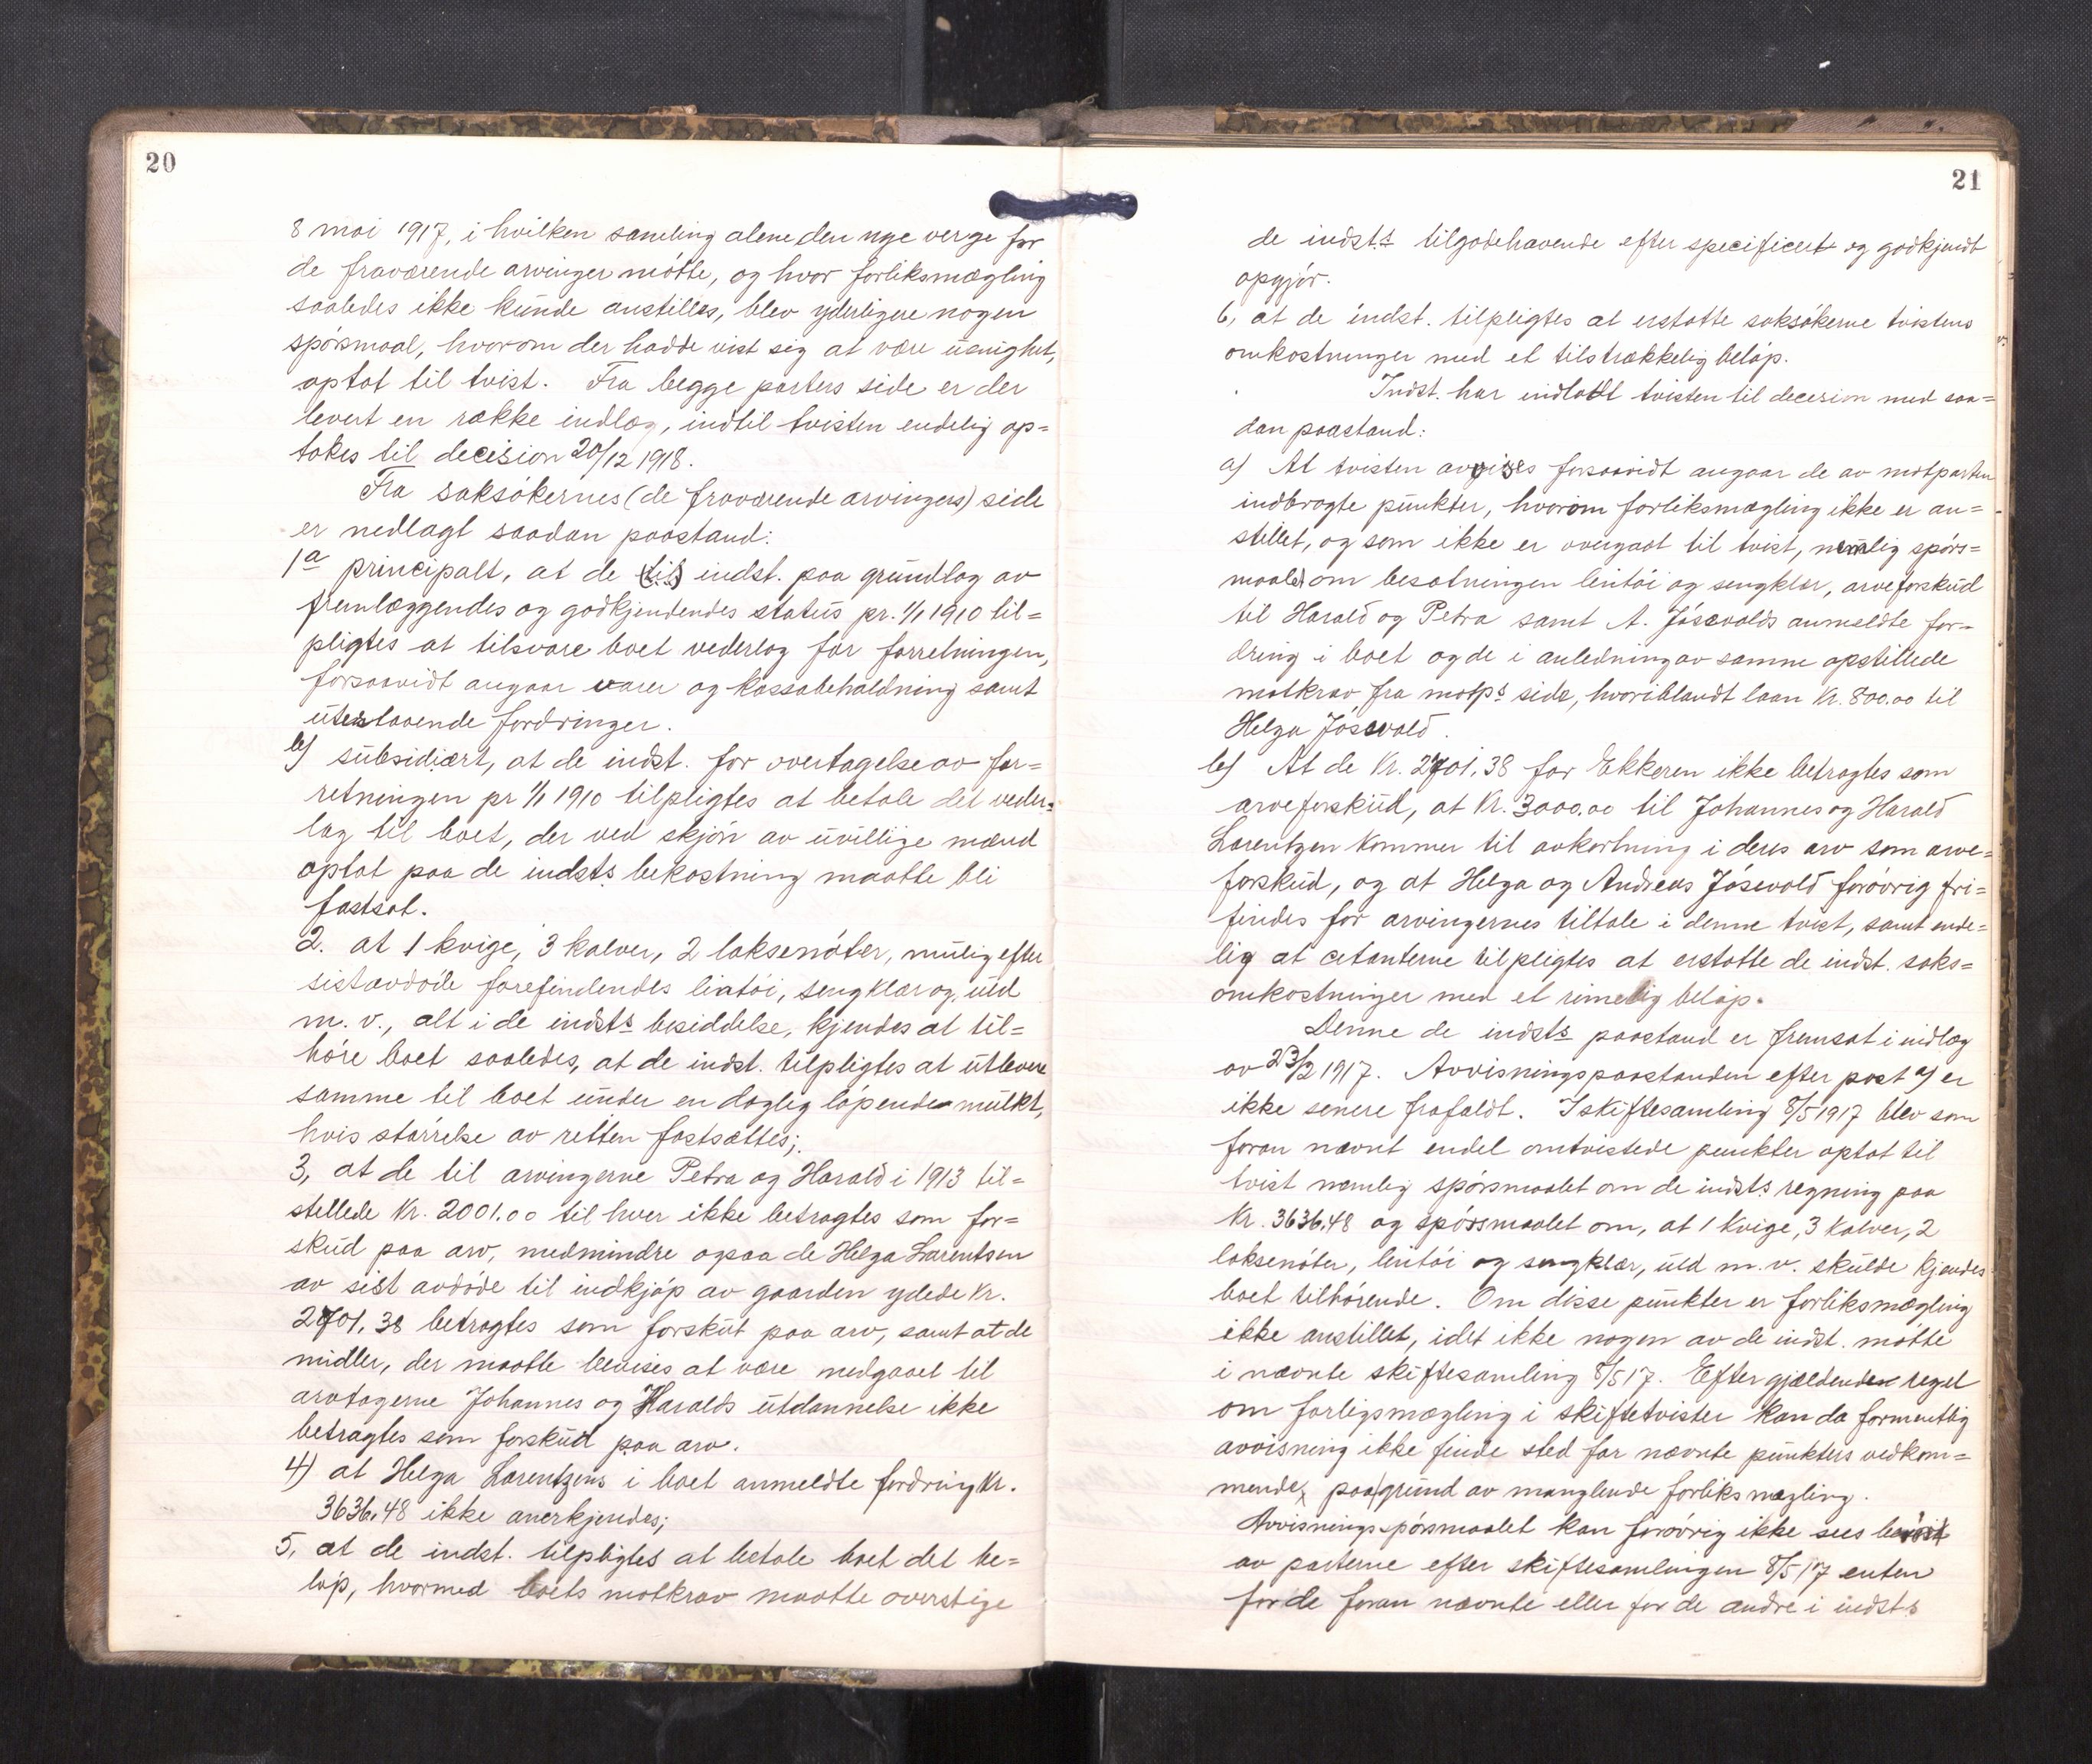 20
8 mai 1917, i hvilken samling alene den nye verge for
de fraværende arvinger mötte, og hvor forliksmægling
saaledes ikke kunde anstilles, blev yderligere nogen
spörsmaal, hvorom der hadde vist sig at være uenighet,
optat til tvist. Fra begge parters side er der
levert en række indlæg, indtil tvisten endelig op=
takes til decision 20/12 1918.
Fra saksökernes (de fraværende arvingers) side
er nedlagt saadan paastand:
1a principalt, at de (til) indst. paa grundlag av
fremlæggendes og godkjendendes status pr. 1/1 1910 til=
pligtes at tilsvare boet vederlag for forretningen,
forsaavidt angaar varer og kassabeholdning samt
utestaaende fordringer.
b) subsidiært, at de indst. for overtagelse av for=
retningen pr 1/1 1910 tilpligtes at betale det veder=
lag til boet, der ved skjön av uvillige mænd
optat paa de indsts bekostning maatte bli
fastsat.
2. at 1 kvige, 3 kalver, 2 laksenöter, mulig efter
sistavdöde forefindendes lintöi, sengklær og uld
m. v., alt i de indsts besiddelse, kjendes at til=
höre boet saaledes, at de indst. tilpligtes at utlevere
samme til boet under en daglig löpende mulkt,
hvis störrelse av retten fastsættes;
3, at de til arvingerne Petra og Harald i 1913 til=
stellede Kr. 2001.00 til hver ikke betragtes som for=
skud paa arv, medmindre ogsaa de Helga Larentsen
av sist avdöde til indkjöp av gaarden ydede Kr.
2701,38 betragtes som forskut paa arv, samt at de
midler, der maatte bevises at være medgaaet til
arvtagerne Johannes og Haralds utdannelse ikke
betragtes som forskud paa arv.
4) at Helga Lorentzens i boet anmeldte fordring Kr.
3636.48 ikke anerkjendes;
5, at de indst. tilpligtes at betale boet det be=
löp, hvormed boets motkrav maatte overstige
21
de indsts tilgodehavende efter specificert og godkjendt
opgjör.
6, at de indst. tilpligtes at erstatte saksökerne tvistens
omkostninger med et tilstrækkelig belöp.
Indst. har indlatt tvisten til decision med saa=
dan paastand:
a) At tvisten avvises forsaavidt angaar de av motparten
indbragte punkter, hvorom forliksmægling ikke er an=
stillet, og som ikke er overgaat til tvist, nemlig spörs=
maalet om besætningen lintöi og sengklær, arveforskud
til Harald og Petra samt A. Jösevolds anmeldte for=
dring i boet og de i anledning av samme opstillede
motkrav fra motps side, hvoriblandt laan Kr. 800.00 til
Helga Jösevold.
b) At de Kr. 2701,38 for Ekkeren ikke betragtes som
arveforskud, at Kr. 3000.00 til Johannes og Harald
Lorentzen kommer til avkortning i deres arv som arve=
forskud, og at Helga og Andreas Jösevold forövrig fri=
findes for arvingernes tiltale i denne tvist, samt ende=
lig at citanterne tilpligtes at erstatte de indst. saks=
omkostninger med et rimelig belöp.
Denne de indsts paastand er fremsat i indlæg
av 23/2 1917. Avvisningspaastanden efter post a) er
ikke senere frafaldt. I skiftesamling 8/5 1917 blev som
foran nævnt endel omtvistede punkter optat til
tvist nemlig spörsmaalet om de indsts regning paa
Kr. 3636.48 og spörsmaalet om, at 1 Kvige, 3 Kalver, 2
laksenöter, lintöi og sengklær, uld m. v. skulde kjendes
boet tilhörende. Om disse punkter er forliksmægling
ikke anstillet, idet ikke nogen av de indst. mötte
i nævnte skiftesamling 8/5 17. Efter gjældende regel
om forligsmægling i skiftetvister kan da formentlig
avvisning ikke finde sted for nævnte punkters vedkom=
mende, paa grund av manglende forliksmægling.
Avvisningsspörsmaalet kan forövrig ikke sees berört
av parterne efter skiftesamlingen 8/5 17 enten
for de foran nævnte eller for de andre i indsts